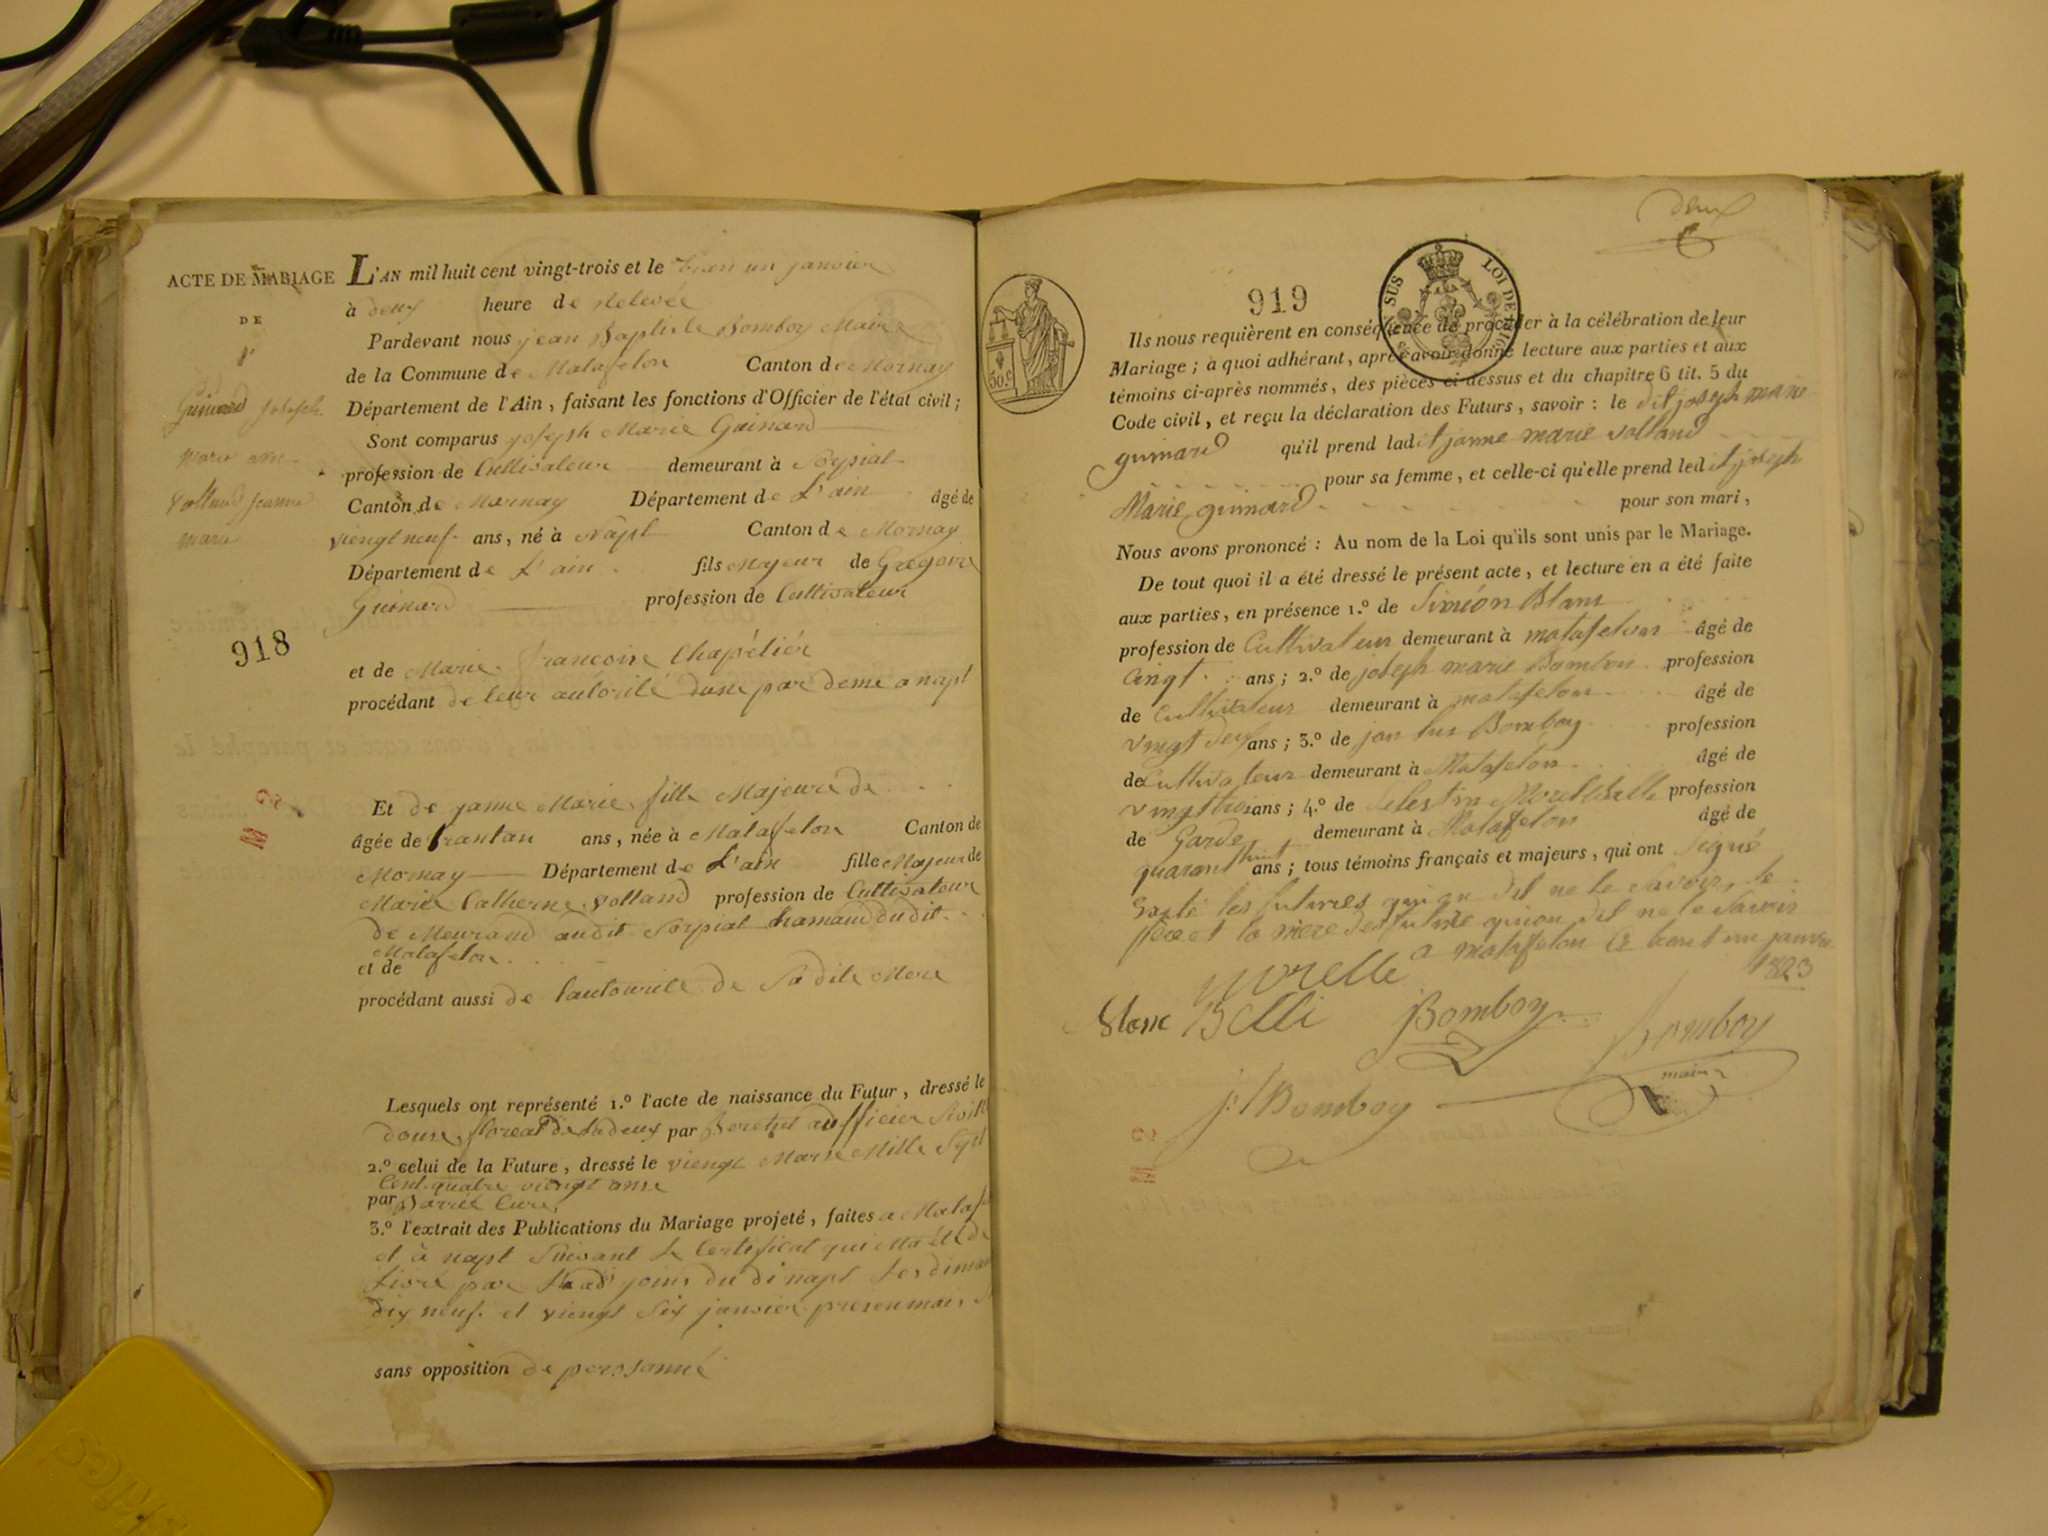 ACTE DE MARIAGE
DE
Guinard joseph
marie
Volland jeanne
marie
918
L'AN mil huit cent vingt-trois et le tran un janvier
à deux heure de Relevée
Pardevant nous jean Baptiste Bomboy Maire
de la Commune de Matafelon Canton de Mornay
Département de l'Ain, faisant les fonctions d'Officier de l'état civil;
Sont comparus joseph Marie Guinard
profession de Cultivateur demeurant à Sorpiat
Canton de Mornay Département de L'ain âgé de
viengt neuf ans, né à Napt Canton de Mornay
Département de L'ain fils Mojeur de Gregoire
Guinard profession de Cultivateur
et de Marie francoise Chapélier
procédant de leur autorité a napt
Et de janne Marie fille Majeure de
âgée de trantan ans, née à Matafelon Canton de
Mornay Département de L'ain fille Majeur de
Marie Catherine Volland profession de Cultivateur
de Meurand audit Sorpiat hamaud dudit
Matafelon
et de
procédant aussi de l'autourité de Sa dite Mere
Lesquels ont représenté 1.º l'acte de naissance du Futur, dressé le
douse floreal par
2.º celui de la Future, dressé le viengt Mars Mille Sept
Cent quatre viengt onse
par Curé
3.º l'extrait des Publications du Mariage projeté, faites a Mataf
et à napt Suivant Le Certificat qui ma été de
livré par Les diman
dix neuf et viengt Six janvier
sans opposition de personné
deux
919
50 c
LOI DE
SUS
Ils nous requièrent en conséquence de procéder à la célébration de leur
Mariage; à quoi adhérant, après avoir donné lecture aux parties et aux
témoins ci-après nommés, des pièces ci-dessus et du chapitre 6 tit. 5 du
Code civil, et reçu la déclaration des Futurs, savoir: le dit joseph marie
guinard qu'il prend ladit janne marie volland
pour sa femme, et celle-ci qu'elle prend ledit joseph
Marie guinard pour son mari,
Nous avons prononcé: Au nom de la Loi qu'ils sont unis par le Mariage.
De tout quoi il a été dressé le présent acte, et lecture en a été faite
aux parties, en présence 1.º de Siméon Blanc
profession de Cultivateur demeurant à matafelon âgé de
Cingt ans; 2.º de joseph marie Bomboy profession
de Cultivateur demeurant à matafelon âgé de
vingt deuf ans; 3.º de jan luis Bomboy profession
de Cultivateur demeurant à Matafelon âgé de
vingthois ans; 4.º de Selestin Morelbelle profession
de Garde demeurant à Matafelon âgé de
quarant huit ans; tous témoins français et majeurs, qui ont Signé
les futures qui on dit ne le Savoir, le
pere et la mere des future quion dit ne le Savoir
a matafelon Ce trant un janvie
1823
morelle
Blanc Belli Bomboy Bomboy
maire
j. l Bomboy